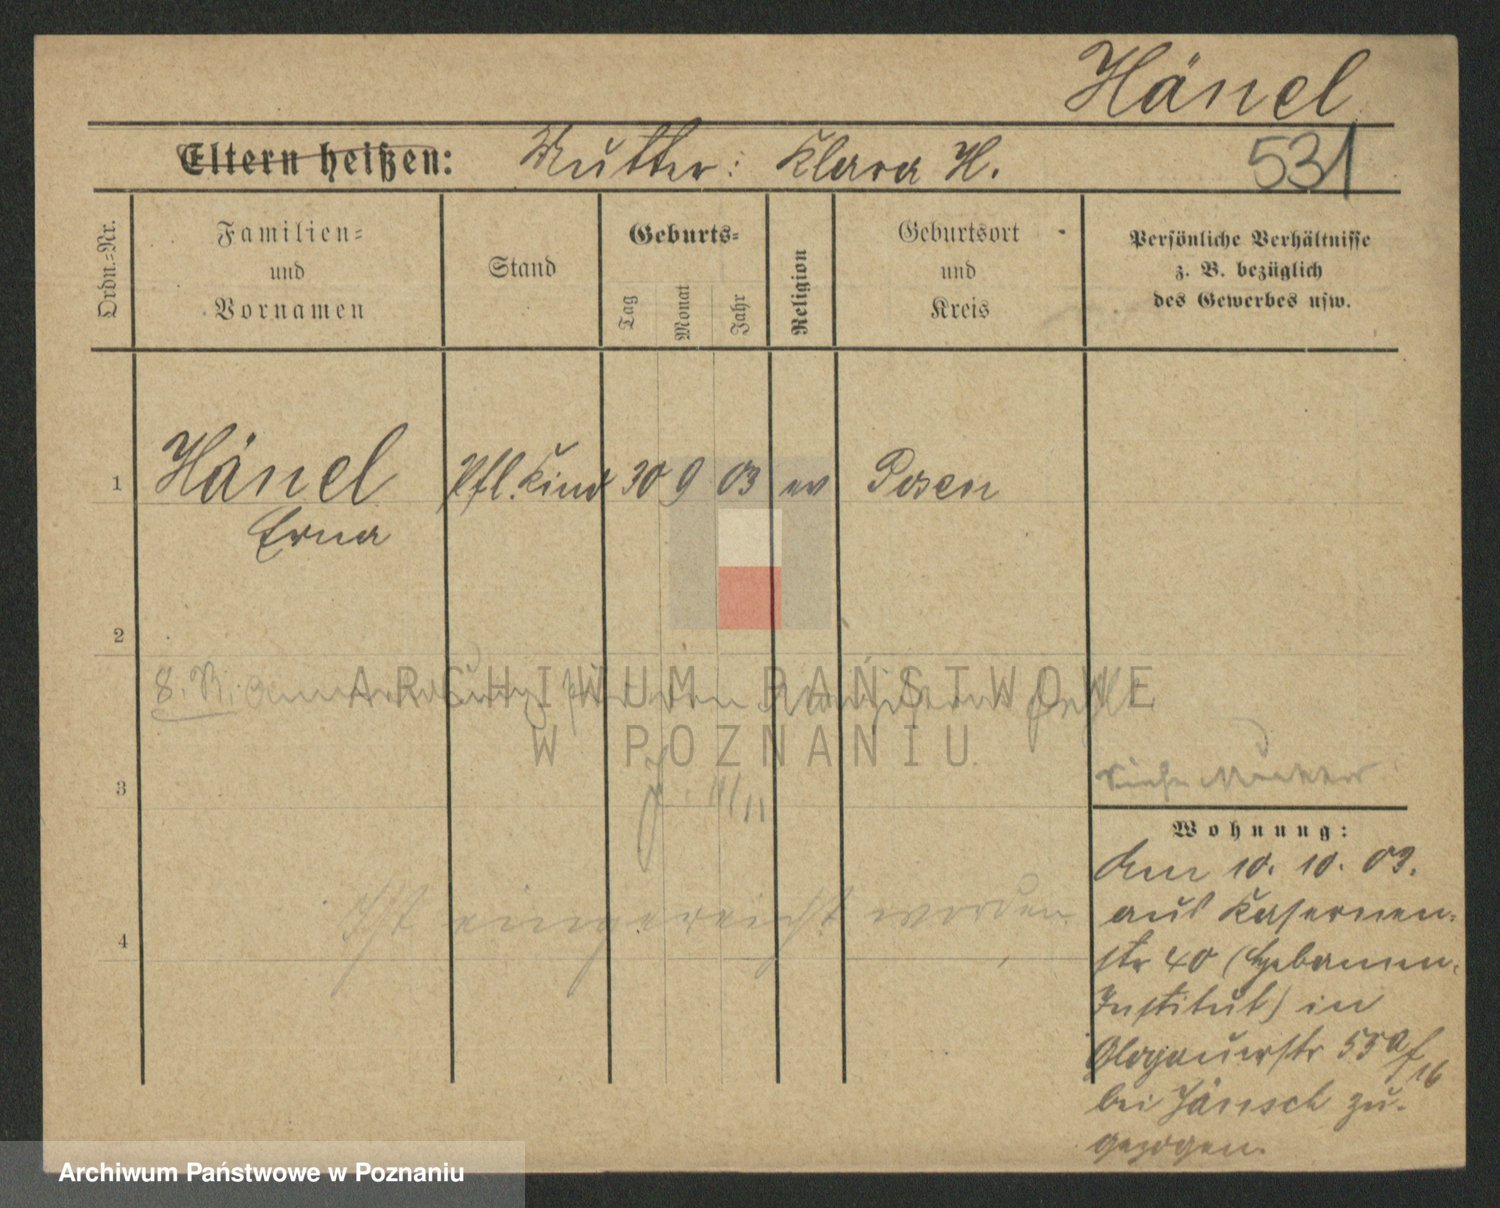 Hänel
Eltern heißen: Mutter: Klara H. 531
Ordn.-Nr.
Familien-
und
Vornamen
Stand
Geburts-
Tag
Monat
Jahr
Religion
Geburtsort
und
Kreis
Persönliche Verhältnisse
z. B. bezüglich
des Gewerbes usw.
1 Hänel Pfl. Kind 30 9 03 ev Posen
Erna
2
8. R.
ARCHIWUM PAŃSTWOWE
W POZNANIU
3
Siehe Mutter
Wohnung:
Am 10. 10. 03.
aus Kasernen-
str 40 (Hebammen-
Institut) in
Glogauerstr 55a
bei Jänsch zu-
gezogen.
Ist eingereicht worden
4
Archiwum Państwowe w Poznaniu